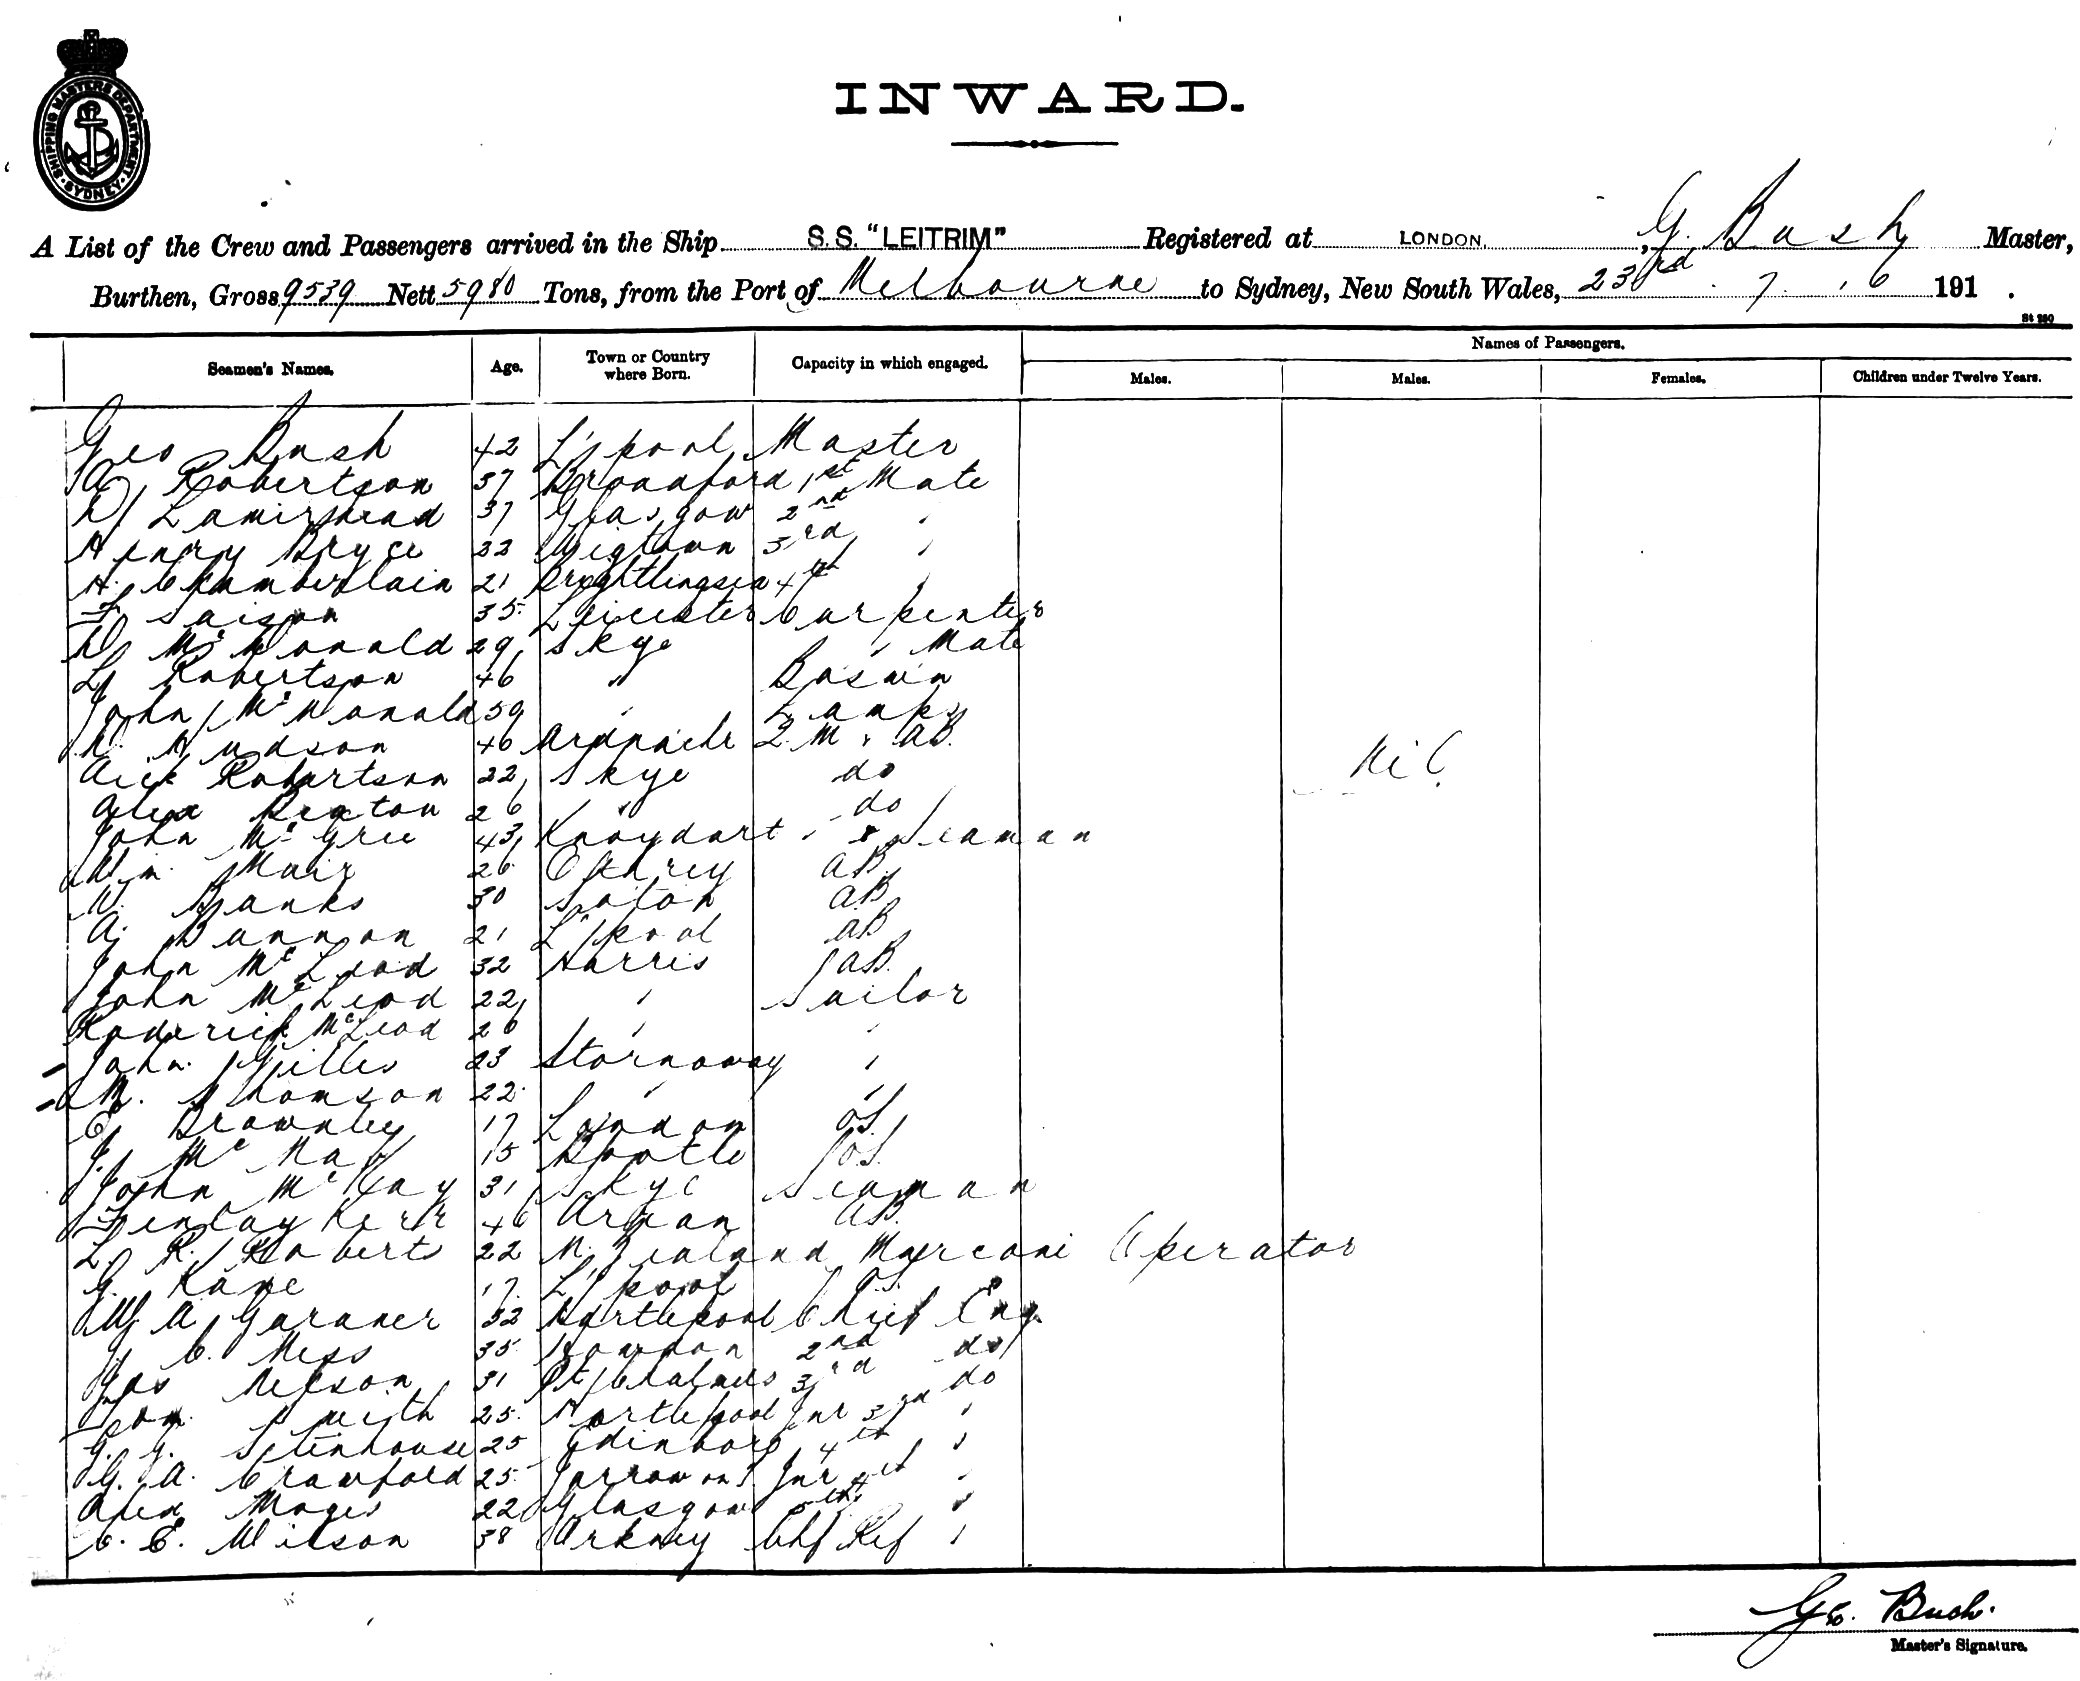 SHIPPING MASTERS DEPARTMENT. SYDNEY
INWARD.
A List of the Crew and Passengers arrived in the Ship S.S. "LEITRIM" Registered at LONDON, G. Bush Master,
Burthen, Gross 9539 Nett 5980 Tons, from the Port of Melbourne to Sydney, New South Wales, 23rd . 7 . 6 191 .
St 280
Names of Passengers.
Seamen's Names. Age. Town or Country where Born. Capacity in which engaged. Males. Males. Females. Children under Twelve Years.
Geo Bush 42 L'pool Master
A Robertson 37 1st Mate
D 37 Glasgow 2nd "
Henry Bryce 22 Wigtown 3rd "
H. Chamberlain 21 Brightlingsea 4th "
F Saison 35 Leicester Carpenter
D McDonald 29 Skye " Mate
L Robertson 46 " Bosun
John McDonald 59 " Lamps
D. Hudson 46 Q.M. & AB.
Nil
Alick Robertson 22 Skye do
Alex 26 " do
John McGree 43 Knoydart " & Seaman
Wm. Muir 26 AB.
W. Banks 30 Soton AB
A. Bannon 21 L'pool AB
John McLeod 32 Harris AB.
John McLeod 22 " Sailor
Roderick McLeod 26 " "
John Gilles 23 Stornoway "
M. Thomson 22 " "
E Brownley 17 London O.S.
J. 15 Bootle O.S.
John McKay 31 Skye Seaman
Finlay Kerr 46 Arran AB.
L. R. Roberts 22 N. Zealand Marconi Operator
G. Kane 17 L'pool O.S.
W A Gardner 32 Hartlepool Chief Eng.
J. C. Hess 35 Howdon 2nd do
Jas Nelson 31 3rd do
Tom. Smith 25 Hartlepool Jnr 3rd "
G. G. Stenhouse 25 Edinboro 4th "
G. A. Crawford 25 Jarrow on T. Jnr 4th "
Alex 22 Glasgow 5th "
C. E. Wilson 38 Orkney Chf Ref "
Geo. Bush.
Master's Signature.